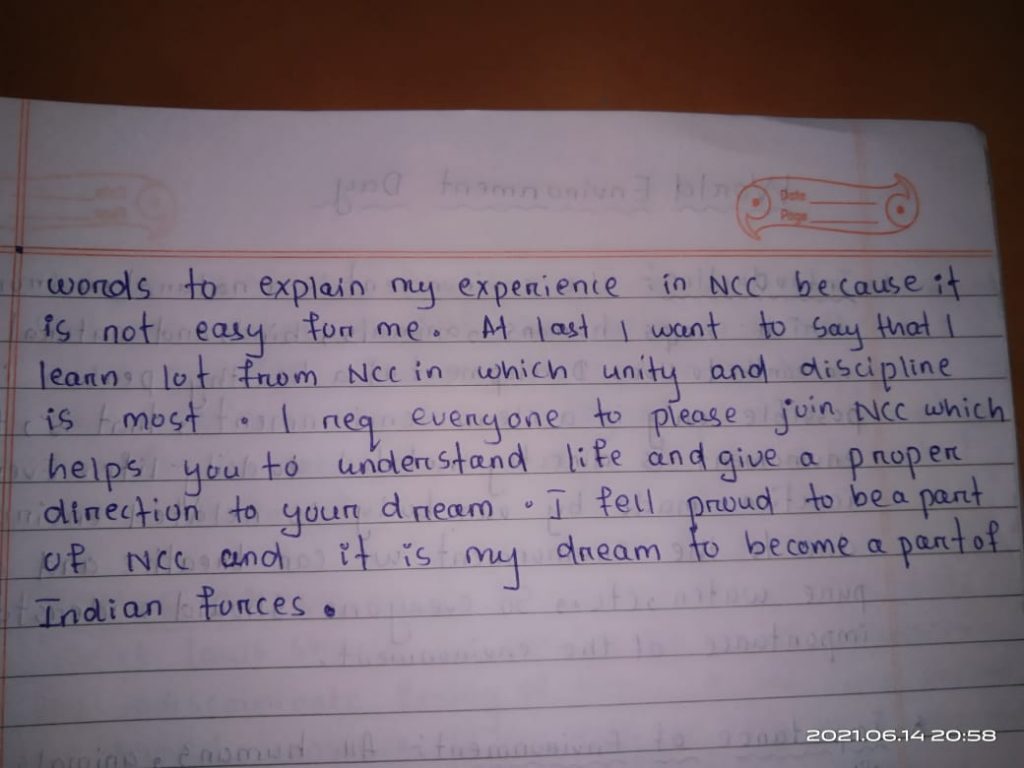 Date
Page
words to explain my experience in NCC because it
is not easy for me. At last I want to say that I
learn lot from NCC in which unity and discipline
is most. I req everyone to please join NCC which
helps you to understand life and give a proper
direction to your dream. I fell proud to be a part
of NCC and it is my dream to become a part of
Indian forces.
2021.06.14 20:58